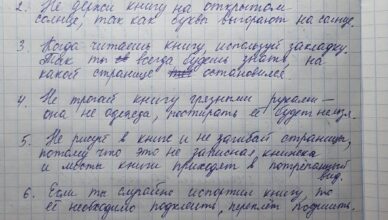 2. Не держи книгу на открытом
солнце, так как буквы выгорают на солнце.
3. Когда читаешь книгу, используй закладку.
Так ты всегда будешь знать, на
какой странице остановился.
4. Не трогай книгу грязными руками —
она не одежда, постирать её будет нельзя.
5. Не рисуй в книге и не загибай страницы,
потому что это не записная книжка
и листы книги приходят в потрепанный
вид.
6. Если ты случайно испортил книгу, то
её необходимо подклеить, переплёт подшить.